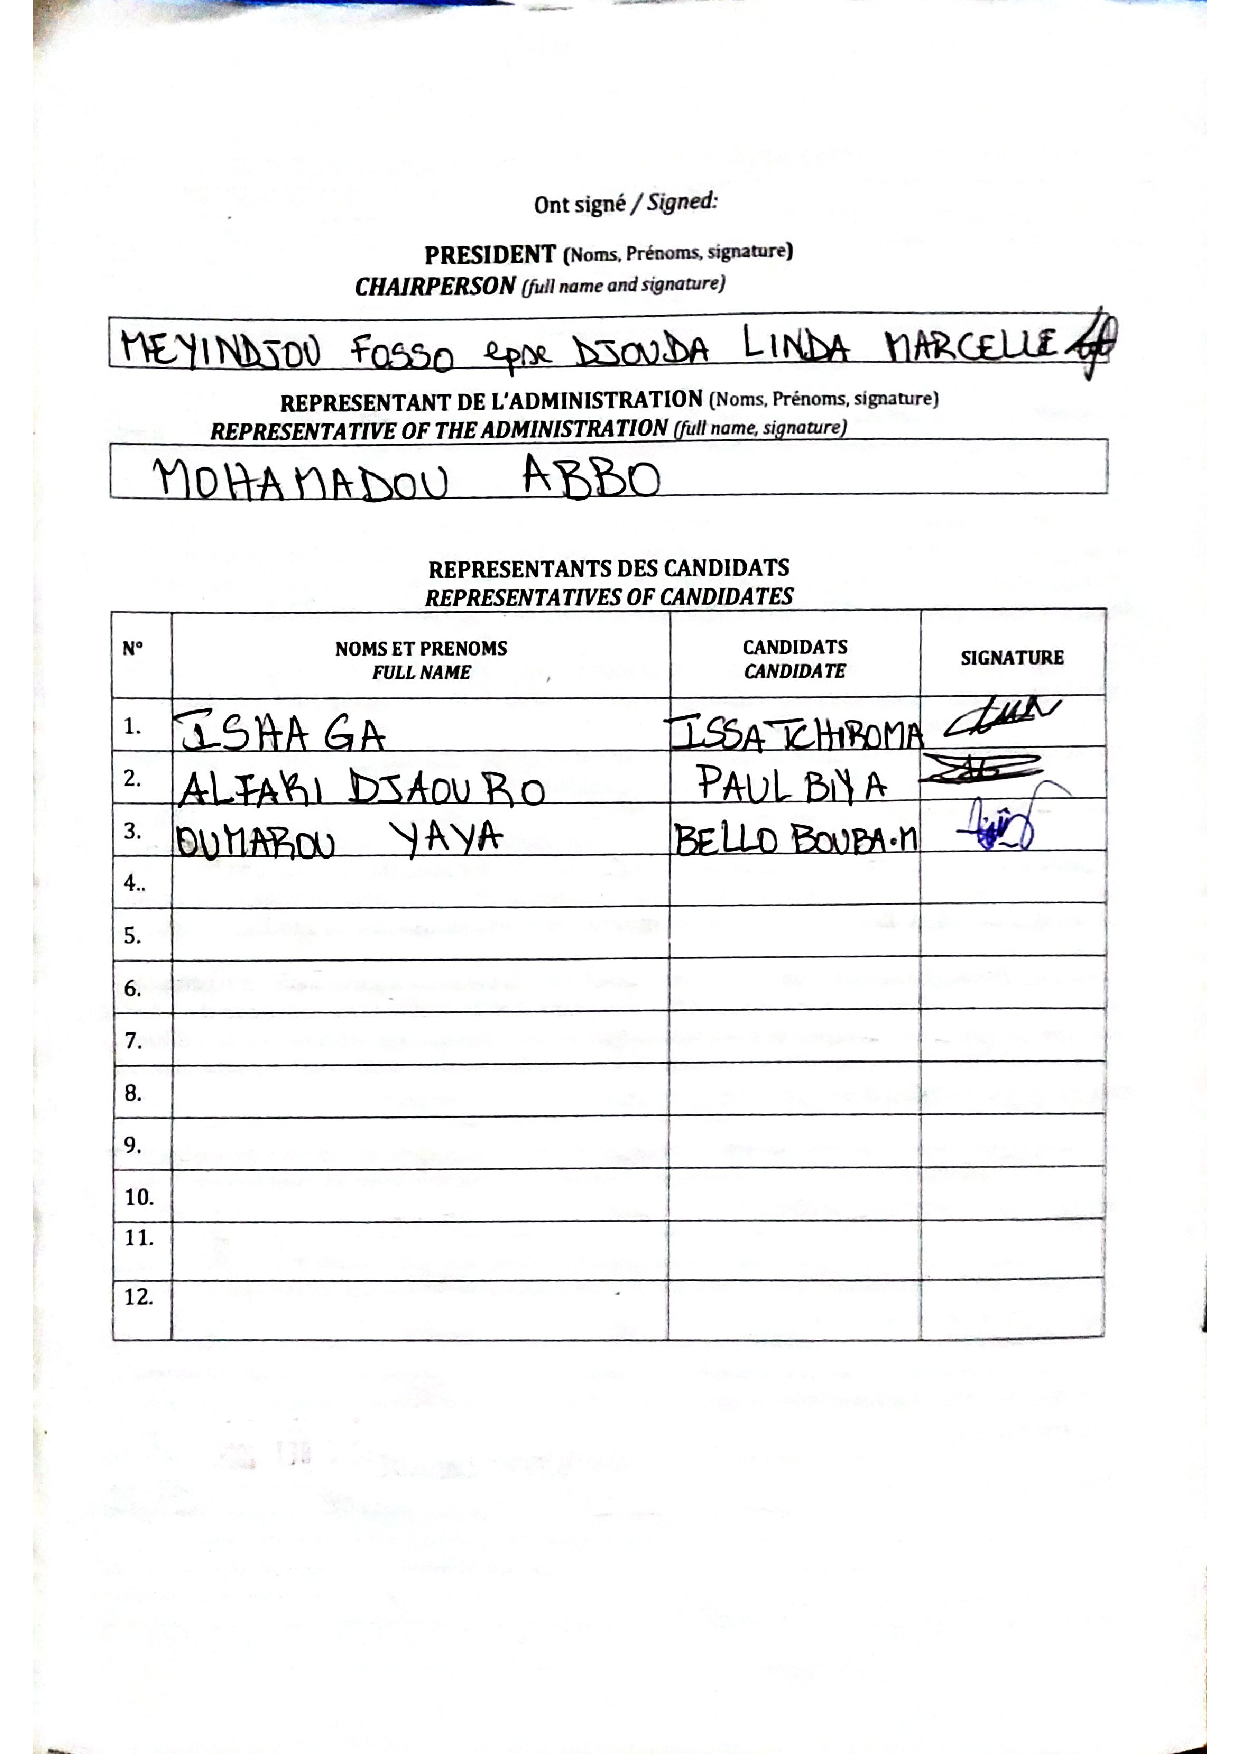 Ont signé / Signed:
PRESIDENT (Noms, Prénoms, signature)
CHAIRPERSON (full name and signature)
MEYINDJOU FOSSO epse DJOUDA LINDA MARCELLE
REPRESENTANT DE L'ADMINISTRATION (Noms, Prénoms, signature)
REPRESENTATIVE OF THE ADMINISTRATION (full name, signature)
MOHAMADOU ABBO
REPRESENTANTS DES CANDIDATS
REPRESENTATIVES OF CANDIDATES
N° NOMS ET PRENOMS CANDIDATS SIGNATURE
FULL NAME CANDIDATE
1. ISHAGA ISSA TCHIROMA
2. ALFARI DJAOURO PAUL BIYA
3. OUMAROU YAYA BELLO BOUBA.M
4..
5.
6.
7.
8.
9.
10.
11.
12.